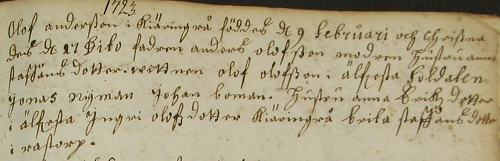 1723
Olof andersson i Kiäringrå föddes d 9 februari och christna
des d 17 Dito fadren anders olofsson modren hustru anna
staffans dotter. wittnen olof olofsson i älfresta Soldaten
Jonas nyman Johan boman. Hustru anna Erikz dotter
i älfresta Ingri olofz dotter Kiäringrå brita staffans dotter
i rastorp.